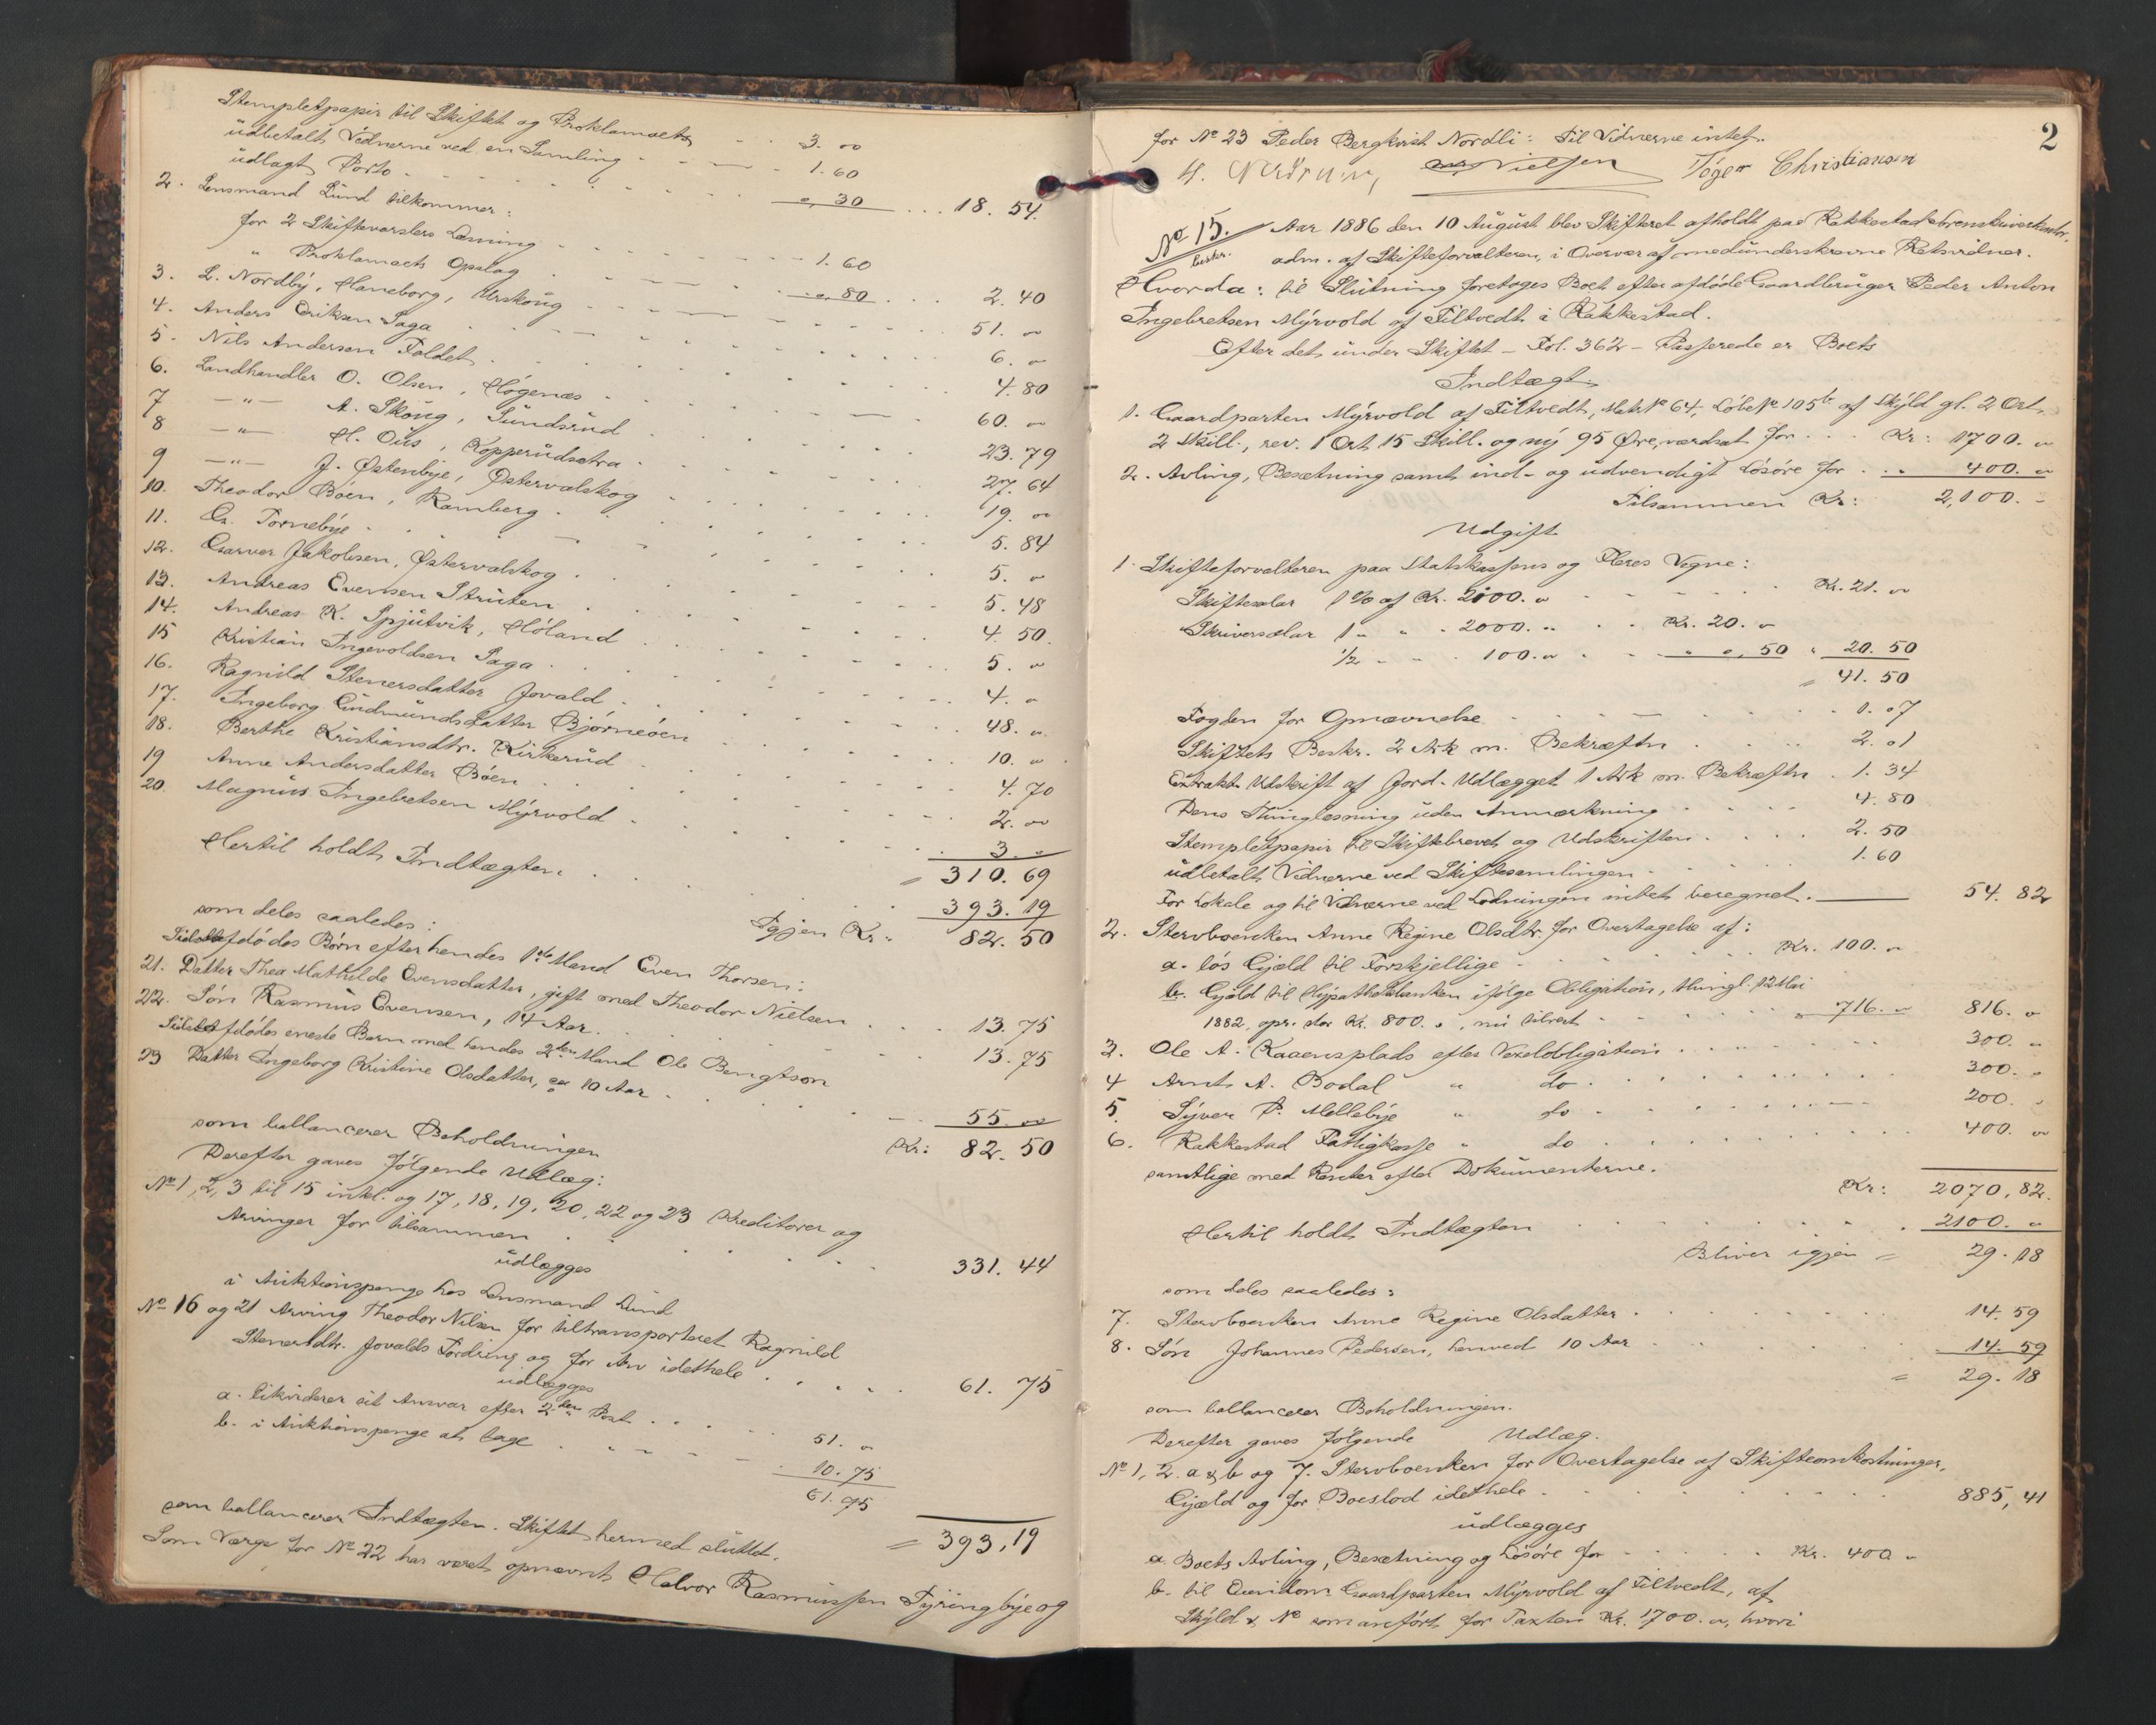 Stempletpapir til Skiftet og Proklamaets . . 3. "
udbetalt Vidnerne ved en Samling . . 1. 60
udlagt Porto . . ", 30 . . . 18. 54.
2. Lensmand Lund tilkommer:
for 2 Skiftevarslers Læsning . . 1. 60
" Proklamaets Opslag . . ", 80 . . . 2. 40
3. L. Nordby, Haneborg, Urskoug . . 51. "
4. Anders Eriksen Saga . . 6. "
5. Nils Andersen Foldet . . 4. 80
6. Landhandler O. Olsen, Høgenæs . . 60. "
7 —"— A. Skoug, Sundsrud . . 23. 79
8 —"— H. Ous, Kopperudsætra . . 27. 64
9 —"— J. Østenbye, Østervalskog . . 19. "
10. Theodor Bøen, Ramberg . . 5. 84
11. Tornebye . . 5. "
12. Garver Jakobsen, Østervalskog . . 5. 48
13. Andreas Evensen Struten . . 4. 50.
14. Andreas K. Spjutvik, Høland . . 5. "
15 Kristian Ingevoldsen Saga . . 4. "
16. Ragnild Stenersdatter Jovald . . 48. "
17. Ingeborg Gudmundsdatter Bjørneøen . . 10. "
18. Berthe Kristiansdtr. Kirkerud . . 4. 70
19 Anne Andersdatter Bøen . . 2. "
20. Magnus Ingebretsen Myrvold . . 3. "
= 310. 69
Hertil holdt Indtægten . . 393. 19
Igjen Kr. 82. 50
som deles saaledes:
Afdødes Børn efter hendes 1ste Mand Even Thorsen:
21. Datter Thea Mathilde Evensdatter, gift med Theodor Nielsen . . 13. 75
22. Søn Rasmus Evensen, 14 Aar . . 13. 75
Afdødes eneste Barn med hendes 2den Mand Ole Bengtson
23 Datter Ingeborg Kristine Olsdatter, ca 10 Aar . . 55. "
som ballancerer Beholdningen Kr: 82. 50
Derefter gaves følgende Udlæg:
No 1, 2, 3 til 15 inkl. og 17, 18, 19, 20, 22 og 23 Kreditorer og
Arvinger for tilsammen . . 331. 44
udlægges
i Auktionspenge hos Lensmand Lund
No 16 og 21 Arving Theodor Nilsen for tiltransporteret Ragnild
Stenersdtr. Jovalds Fordring og for Arv idethele . . 61. 75
udlægges
a. likviderer sit Ansvar efter 2den Post . . 51. "
b. i Auktionspenge at tage . . 10. 75
61. 75
= 393, 19
som ballancerer Indtægten. Skiftet hermed sluttet.
Som Værge for No 22 har været opnævnt Halvor Rasmussen Tyringbye og
2
for No 23 Peder Bergkvist Nordli: Til Vidnerne intet.
Nielsen Christiansen
No 15. Aar 1886 den 10 August blev Skifteret afholdt paa Rakkestad Sorenskriverkontor,
adm. af Skifteforvalteren, i Overvær af medunderskrevne Retsvidner.
Hvorda: til Slutning foretoges Boet efter afdøde Gaardbruger Peder Anton
Ingebretsen Myrvold af Tiltvedt i Rakkestad.
Efter det under Skiftet – Fol. 362 – Passerede er Boets
Indtægt.
1. Gaardparten Myrvold af Tiltvedt, Matr No 64, Løbe No 105b af Skyld gl. 2 Ort,
2 Skill., rev. 1 Ort 15 Skill. og ny 95 Øre, værdsat for . . . Kr: 1700. "
2. Avling, Besætning samt ind- og udvendigt Løsøre for . . . 400. "
Tilsammen Kr: 2,100. –
Udgift
1. Skifteforvalteren paa Statskassens og Fleres Vegne:
Skiftesalar 1 % af Kr. 2100. " . . Kr. 21. "
Skriversalar 1 " " 2000. " . . Kr. 20. "
1/2 " " 100. " . . " ", 50 " 20. 50
" 41. 50
Fogden for Opnævnelse . . 1. 07
Skiftets Beskr. 2 Ark m. Bekræftn . . 2. 01
Extrakt Udskrift af Jord-Udlægget 1 Ark m. Bekræftn . 1. 34
Dens Thinglæsning uden Anmærkning . . 4. 80
Stempletpapir til Skiftebrevet og Udskriften . . 2. 50
udbetalt Vidnerne ved Skiftesamlingen . . 1. 60
For Lokale og til Vidnerne ved Lodningen intet beregnet. —— 54. 82
2. Stervboenken Anne Regine Olsdtr. for Overtagelse af:
a. løs Gjæld til Forskjellige . . Kr. 100. "
b. Gjæld til Hypothekbanken ifølge Obligation, thingl. 12 Mai
1882, opr. stor Kr. 800. ", nu tilrest . . " 716. " 816. "
3. Ole A. Kaaensplads efter Vexelobligation . . 300. "
4 Arnt A. Bodal " do . . 300. "
5. Syver P. Møllebye " do . . 200. "
6. Rakkestad Fattigkasse " do . . 400. "
samtlige med Renter efter Dokumenterne.
Kr: 2070, 82.
Hertil holdt Indtægten . . 2100. "
Bliver igjen = 29. 18
som deles saaledes:
7. Stervboenken Anne Regine Olsdatter . . 14. 59
8. Søn Johannes Pedersen, henved 10 Aar . . 14. 59
= 29. 18
som ballancerer Beholdningen.
Derefter gaves følgende Udlæg.
No 1, 2. a & b og 7. Stervboenken for Overtagelse af Skifteomkostninger,
Gjæld og for Boeslod idethele . . 885, 41
udlægges
a. Boets Avling, Besætning og Løsøre for . . Kr. 400 "
b. til Eiendom Gaardparten Myrvold af Tiltvedt, af
Skyld & No som anført for Taxten Kr. 1700. ", hvori